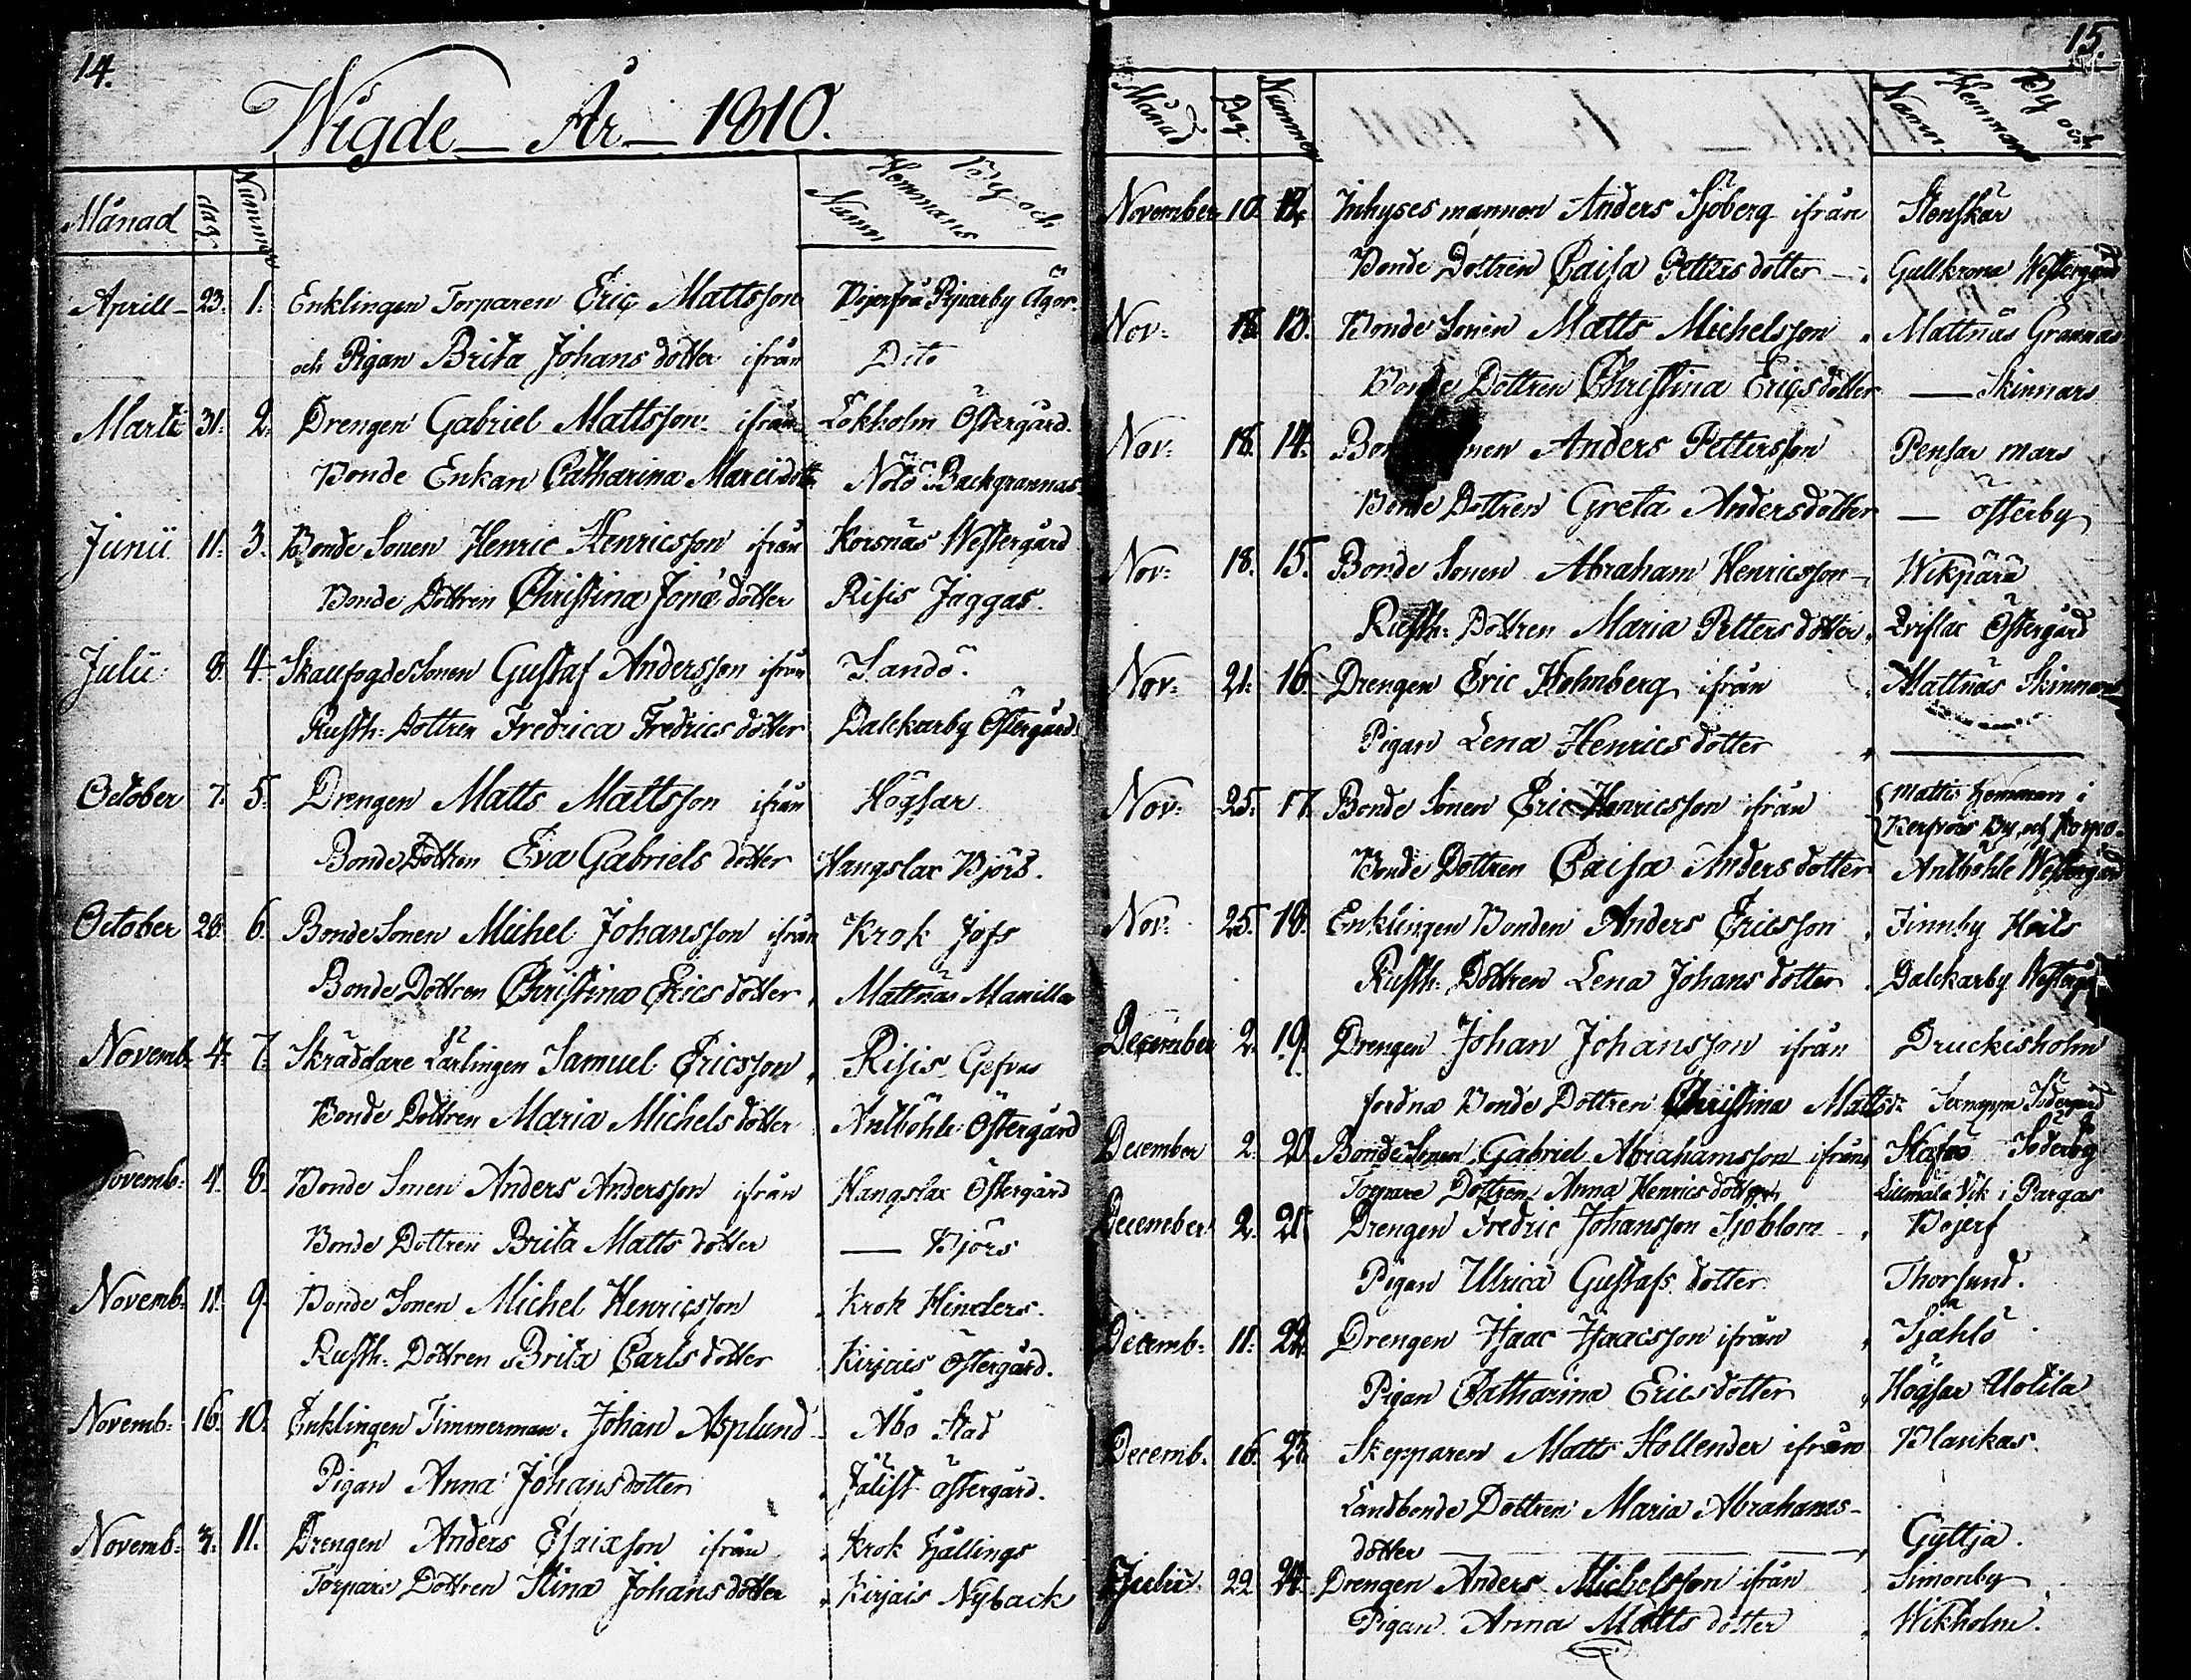 14.
Wigde År 1810.
Månad dag Nummer By och Hemmans Namn
Aprill 23. 1. Enklingen Torparen Eric Mattsson
och Pigan Brita Johans dotter ifrån Dito
Marti 31. 2. Drengen Gabriel Mattsson ifrån Lökholm Östergård.
Bonde Enkan Catharina Marci dott. Nötö Backgrannas
Junii 11. 3. Bonde Sonen Henric Henricsson ifrån Korsnäs Westergård
Bonde Dottren Christina Jonæ dotter Risis Jäggas.
Julii 8. 4. Skaufogde Sonen Gustaf Andersson ifrån Sandö.
Rusth: Dottren Fredrica Fredrics dotter Dalckarby Östergård.
October 7. 5. Drengen Matts Mattsson ifrån Högsar
Bonde Dottren Eva Gabriels dotter Hangslax Björs.
October 28. 6. Bonde Sonen Michel Johansson ifrån Krok Jofs
Bonde Dottren Christina Erics dotter Mattnäs Manilla
Novemb. 4. 7. Skräddare Lärlingen Samuel Ericsson Risis Gefvas
Bonde Dottren Maria Michels dotter Antböhle Östergård
Novemb: 4. 8. Bonde Sonen Anders Andersson ifrån Hangslax Östergård
Bonde Dottren Brita Matts dotter — Björs
Novemb: 11. 9. Bonde Sonen Michel Henricsson Krok Hinders.
Rusth: Dottren Brita Carls dotter Kirjais Östergård.
Novemb: 16. 10. Enklingen Timmerman Johan Asplund Åbo Stad
Pigan Anna Johans dotter Jälist Östergård.
Novemb: 11. Drengen Anders Esaixson ifrån Krok Hjällings
Torpare Dottren Stina Johans dotter Kirjais Nyback
15.
Månad Dag. Nummer By och Hemmans Namn
November 10. 12. Inhyses mannen Anders Sjöberg ifrån Stenskär
Bonde Dottren Caisa Petters dotter Gullkrona Westergård
Nov: 18. 13. Bonde Sonen Matts Michelsson Mattnäs Grannas
Bonde Dottren Christina Erics dotter — Skinnars
Nov: 18. 14. Anders Pettersson Pensar mars
Bonde Dottren Greta Anders dotter — österby
Nov: 18. 15. Bonde Sonen Abraham Henricsson Wikpärä
Rusth: Dottren Maria Petters dotter Qvislax Östergård
Nov: 21. 16. Drengen Eric Holmberg ifrån Mattnäs Skinnars
Pigan Lena Henrics dotter
Nov: 25. 17. Bonde Sonen Eric Henricsson ifrån Mattis hemman i
By, och Korpo.
Bonde Dottren Caisa Anders dotter Antböhle Westergård
Nov: 25. 18. Enklingen Bonden Anders Ericsson Finnby Heils
Rusth: Dottren Lena Johans dotter Dalckarby
December 2. 19. Drengen Johan Johansson ifrån Druckisholm
fordna Bonde Dottren Christina Mattsd: Södergård
December 2. 20. Bonde Sonen Gabriel Abrahamsson ifrån Söderby
Torpare Dottren Anna Henrics dotter Lillmälö Vik i Pargas
December 2. 21. Drengen Fredric Johansson Sjöblom Bojerf
Pigan Ulrica Gustafs dotter Thorsund.
Decemb: 11. 22. Drengen Isaac Isaacsson ifrån Själö
Pigan Catharina Erics dotter Högsar Uotila
Decemb: 16. 23. Skepparen Matts Hollender ifrån Blankas.
Landbonde Dottren Maria Abrahams-
dotter Gyltja.
Julii 22 24. Drengen Anders Michelsson ifrån Simonby
Pigan Anna Matts dotter Wikholm.